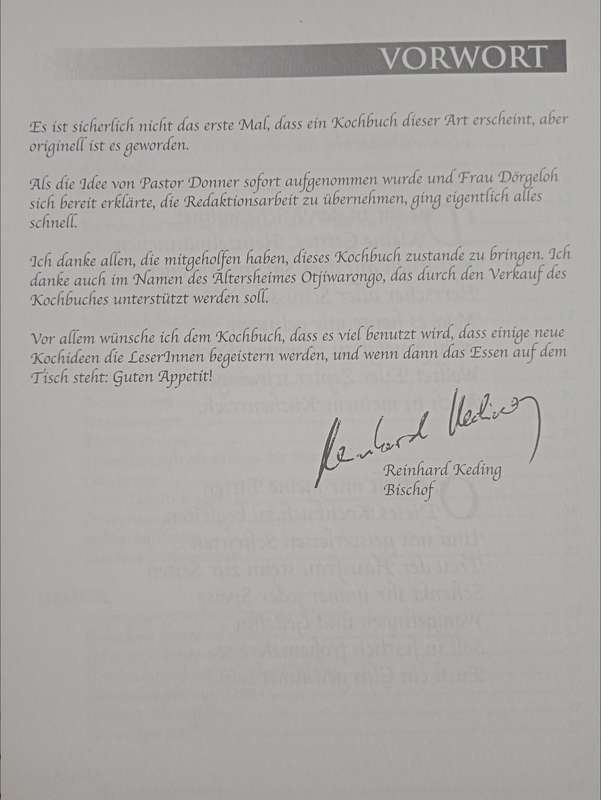 VORWORT
Es ist sicherlich nicht das erste Mal, dass ein Kochbuch dieser Art erscheint, aber
originell ist es geworden.
Als die Idee von Pastor Donner sofort aufgenommen wurde und Frau Dörgeloh
sich bereit erklärte, die Redaktionsarbeit zu übernehmen, ging eigentlich alles
schnell.
Ich danke allen, die mitgeholfen haben, dieses Kochbuch zustande zu bringen. Ich
danke auch im Namen des Altersheimes Otjiwarongo, das durch den Verkauf des
Kochbuches unterstützt werden soll.
Vor allem wünsche ich dem Kochbuch, dass es viel benutzt wird, dass einige neue
Kochideen die LeserInnen begeistern werden, und wenn dann das Essen auf dem
Tisch steht: Guten Appetit!
Reinhard Keding
Reinhard Keding
Bischof